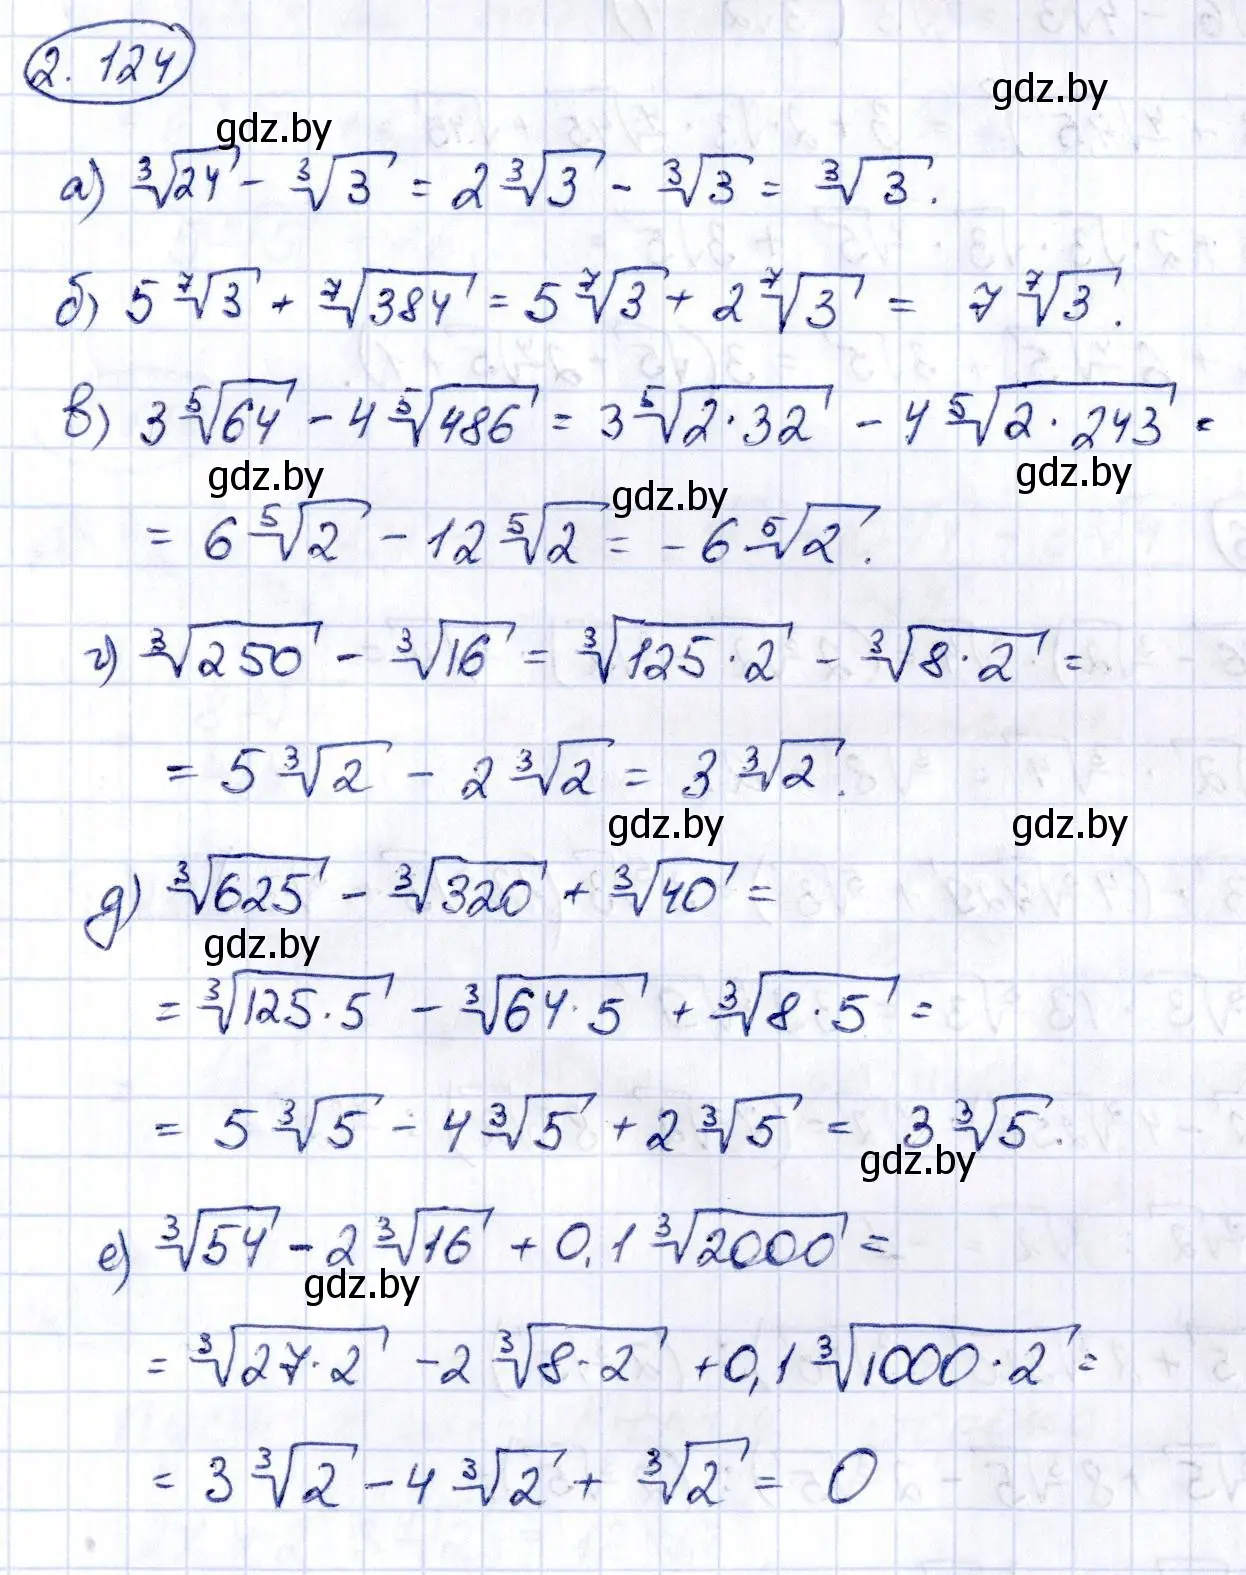 2.124
gdz.by
gdz.by
а) ∛24 - ∛3 = 2∛3 - ∛3 = ∛3.
б) 5 ⁷√3 + ⁷√384 = 5 ⁷√3 + 2 ⁷√3 = 7 ⁷√3.
в) 3 ⁵√64 - 4 ⁵√486 = 3 ⁵√(2·32) - 4 ⁵√(2·243) =
gdz.by
gdz.by
gdz.by
= 6 ⁵√2 - 12 ⁵√2 = -6 ⁵√2.
г) ∛250 - ∛16 = ∛(125·2) - ∛(8·2) =
= 5∛2 - 2∛2 = 3∛2.
gdz.by
gdz.by
д) ∛625 - ∛320 + ∛40 =
gdz.by
= ∛(125·5) - ∛(64·5) + ∛(8·5) =
= 5∛5 - 4∛5 + 2∛5 = 3∛5.
gdz.by
е) ∛54 - 2∛16 + 0,1∛2000 =
gdz.by
= ∛(27·2) - 2∛(8·2) + 0,1∛(1000·2) =
= 3∛2 - 4∛2 + ∛2 = 0